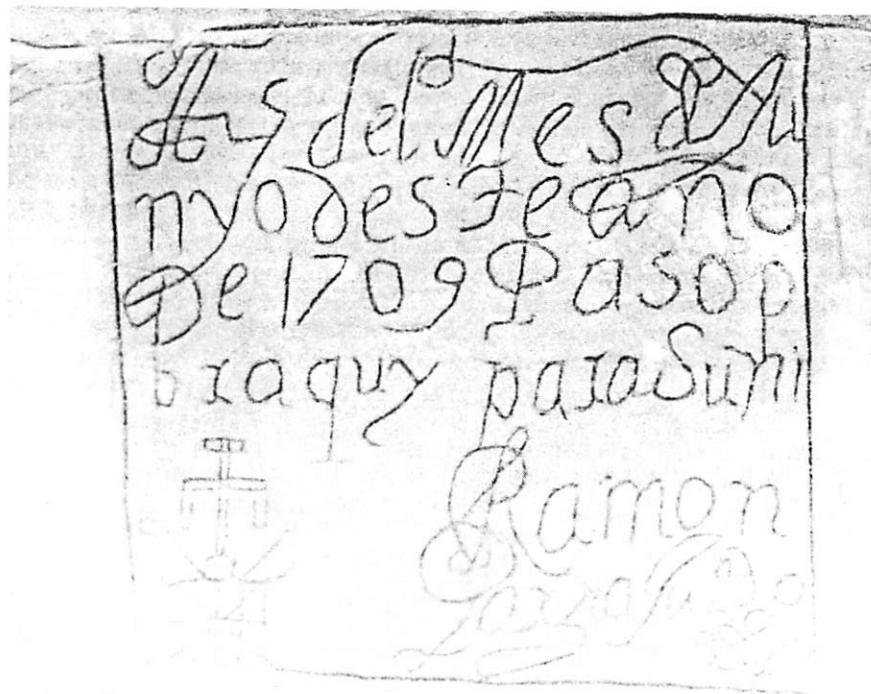 A 25 del Mes de Ju
nyo deste año
De 1709 Paso p
or aquy para Suñi
Ramon